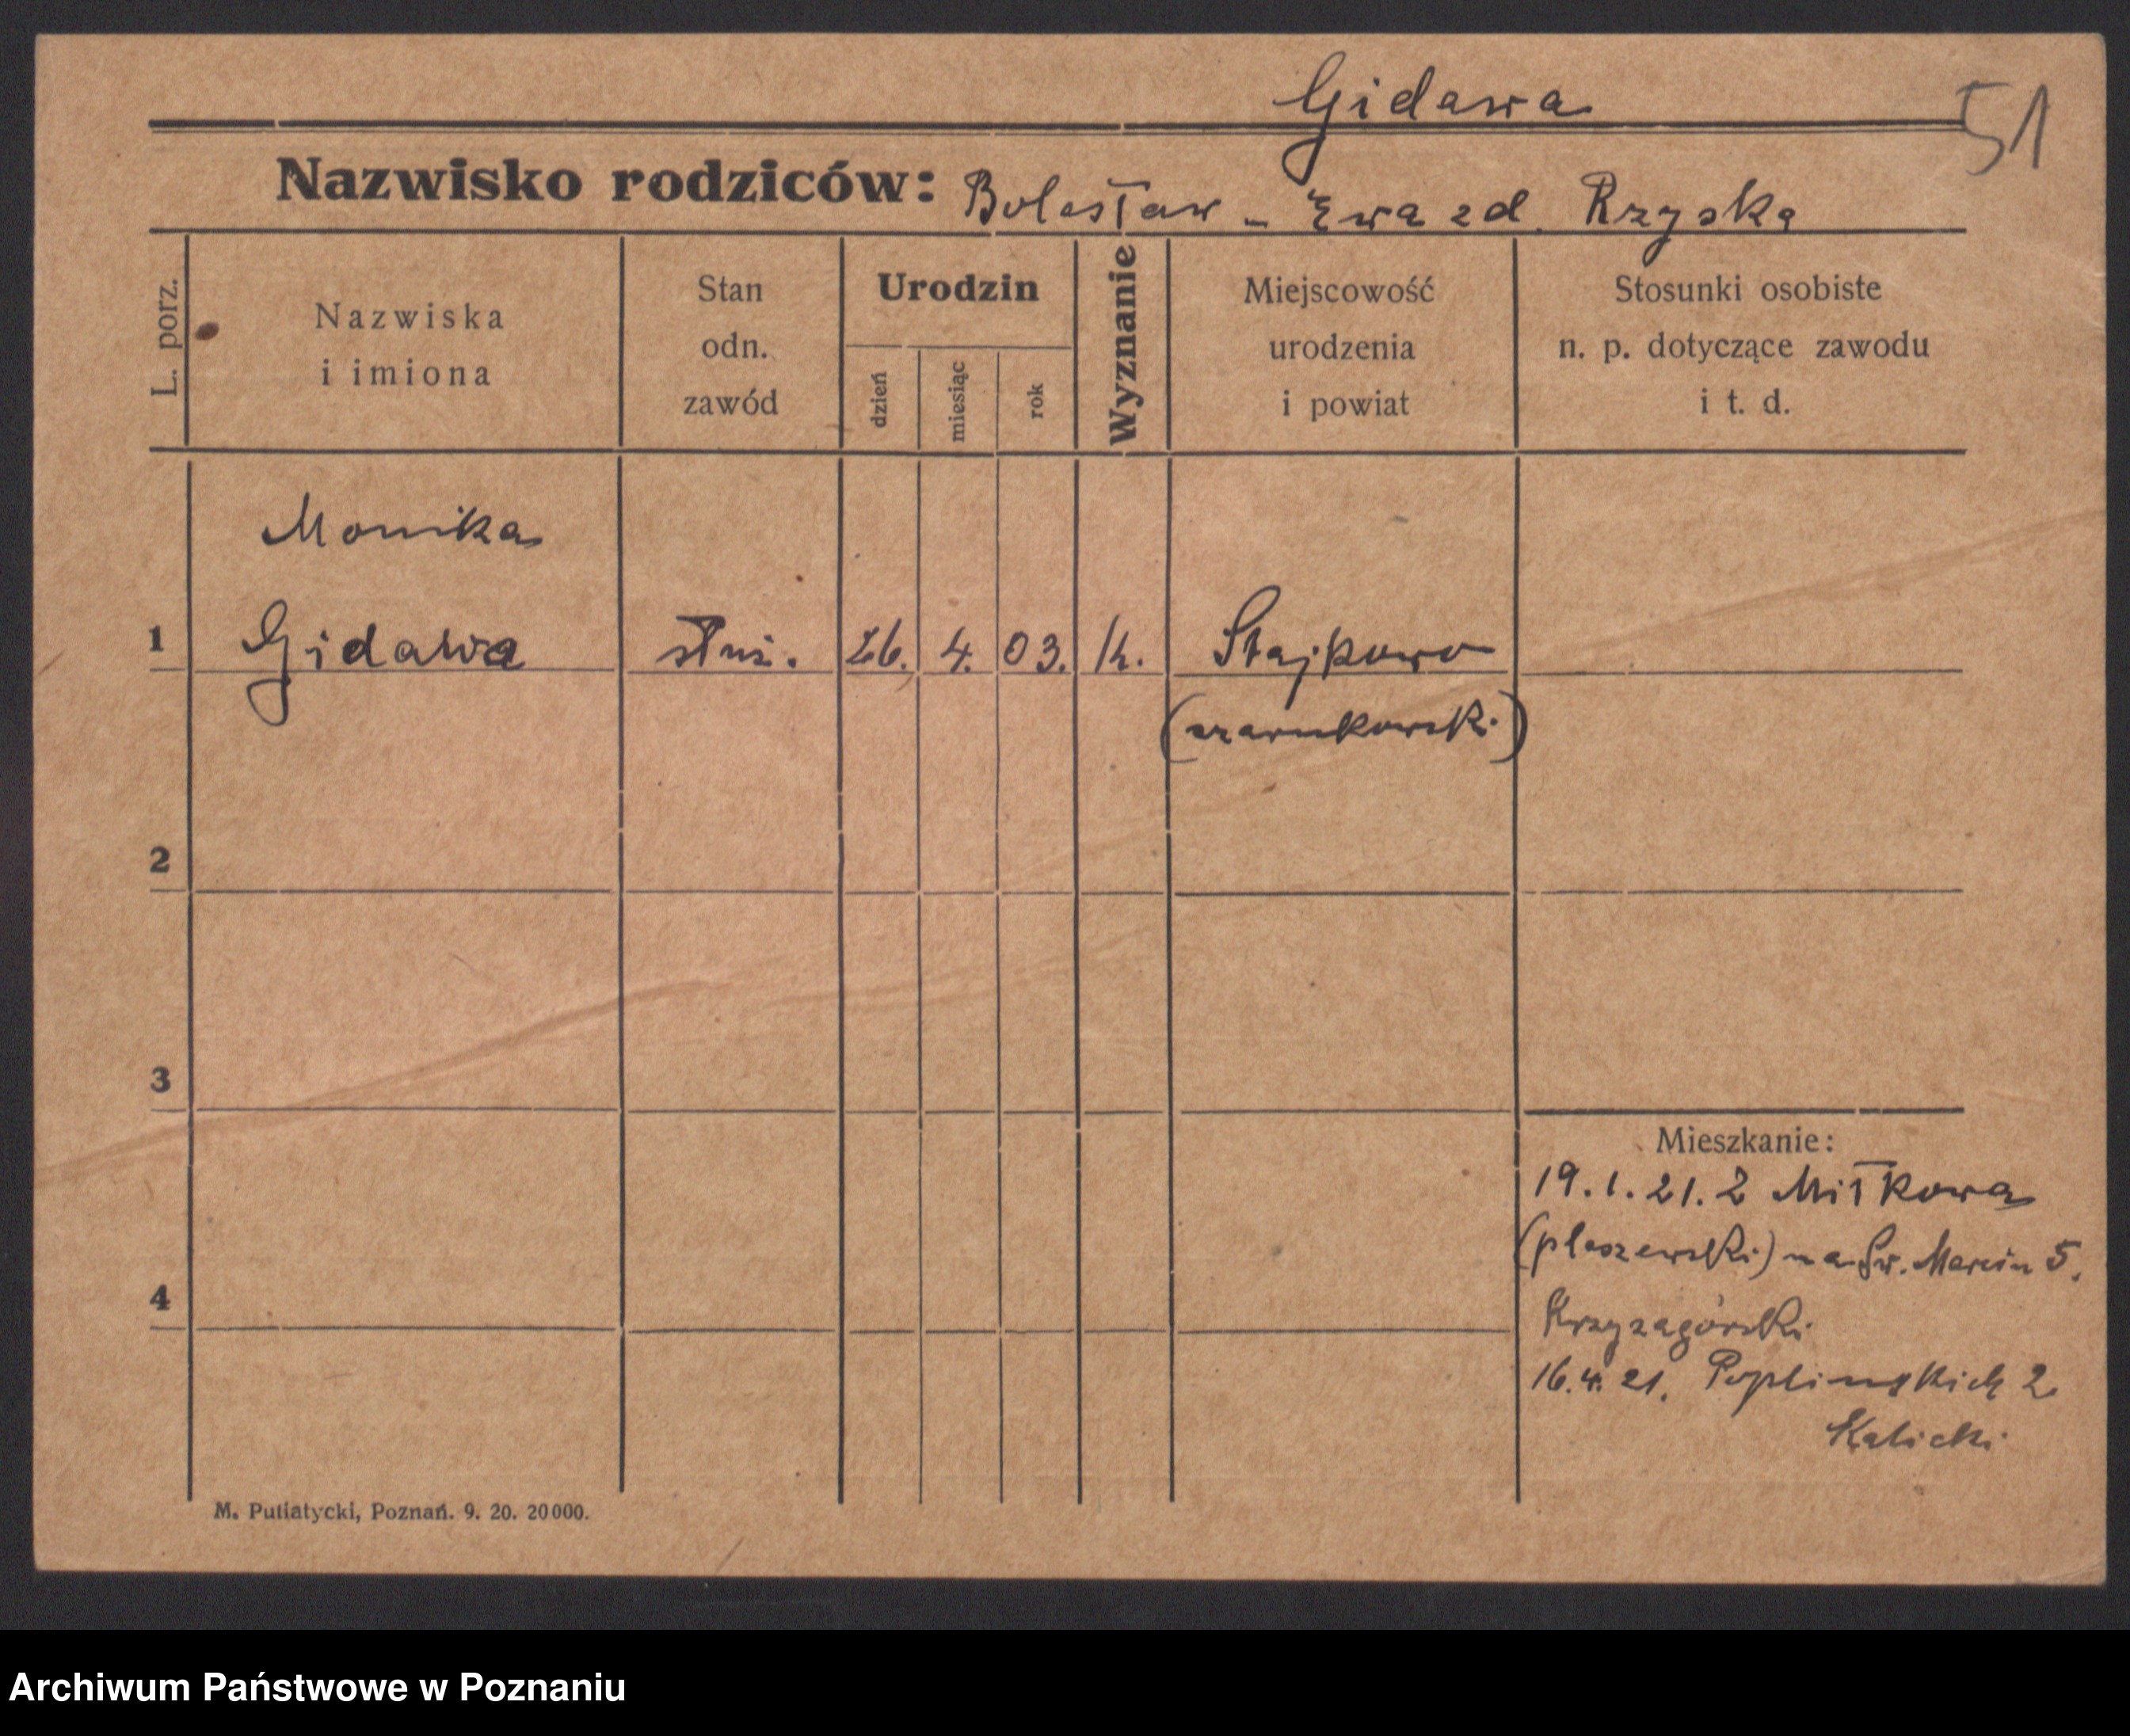 Gidawa
51
Nazwisko rodziców: Bolesław - Ewa zd. Rzyska
L. porz.
Nazwiska
i imiona
Stan
odn.
zawód
Urodzin
dzień
miesiąc
rok
Wyznanie
Miejscowość
urodzenia
i powiat
Stosunki osobiste
n. p. dotyczące zawodu
i t. d.
Monika
1 Gidawa służ. 26. 4. 03. k. Stajkowo
(czarnkowski)
2
3
4
Mieszkanie:
19.1.21. z Miłkowa
(pleszewski) na Św. Marcin 5.
Krzyżagórski
16.4.21. Poplinskich 2
Kalicki
M. Putiatycki, Poznań. 9. 20. 20000.
Archiwum Państwowe w Poznaniu